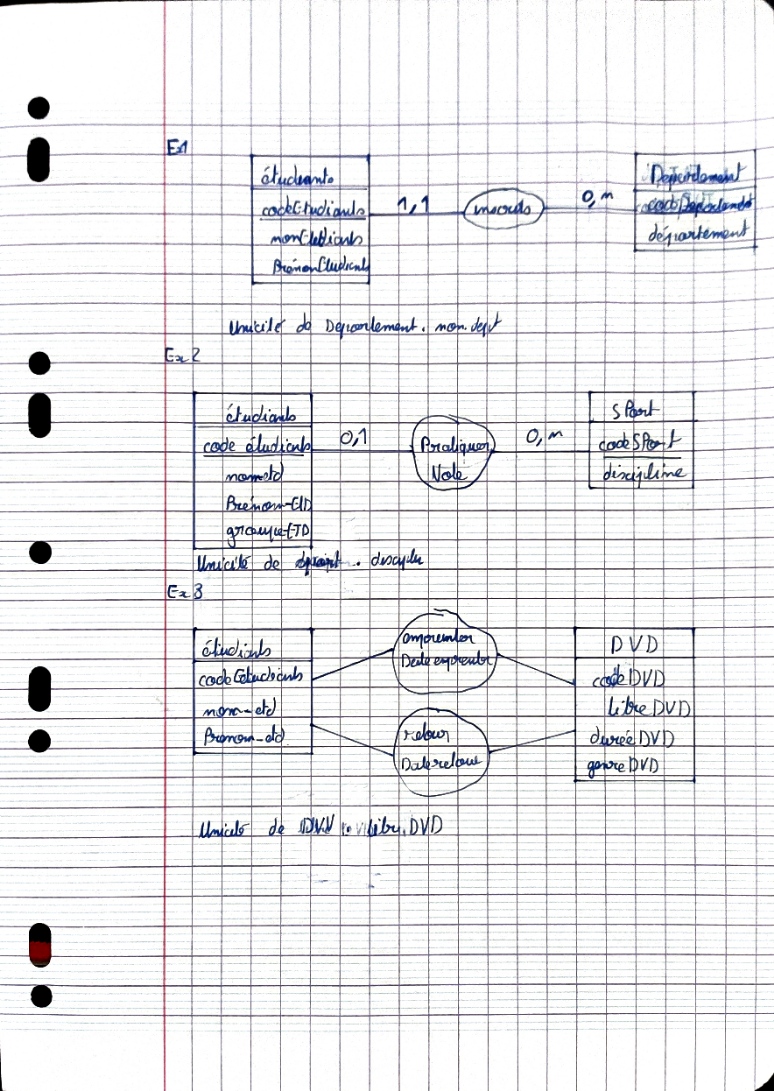 Ex1
étudiants
codeEtudiants
nomEtudiants
PrénomEtudiants
1,1
inscrits
0,n
Departement
codeDepartement
département
Unicité de Departement. nom.dept
Ex2
étudiants
code étudiants
nometd
Prénom-ETD
groupe-ETD
0,1
Pratiquer
Note
0,n
SPort
codeSPort
discipline
Unicité de . discipli
Ex3
étudiants
codeEtudiants
nom-etd
Prenom-etd
emprunter
Date emprunter
retour
Dateretour
DVD
codeDVD
libreDVD
duréeDVD
genreDVD
Unicité de libre.DVD